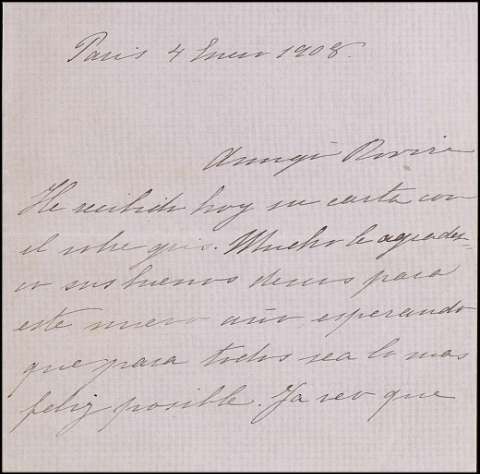 Paris 4 Enero 1908.
Amigo Rovira
He recibido hoy su carta con
el sobre gris. Mucho le agradez-
co sus buenos deseos para
este nuevo año esperando
que para todos sea lo mas
feliz posible. Ya veo que